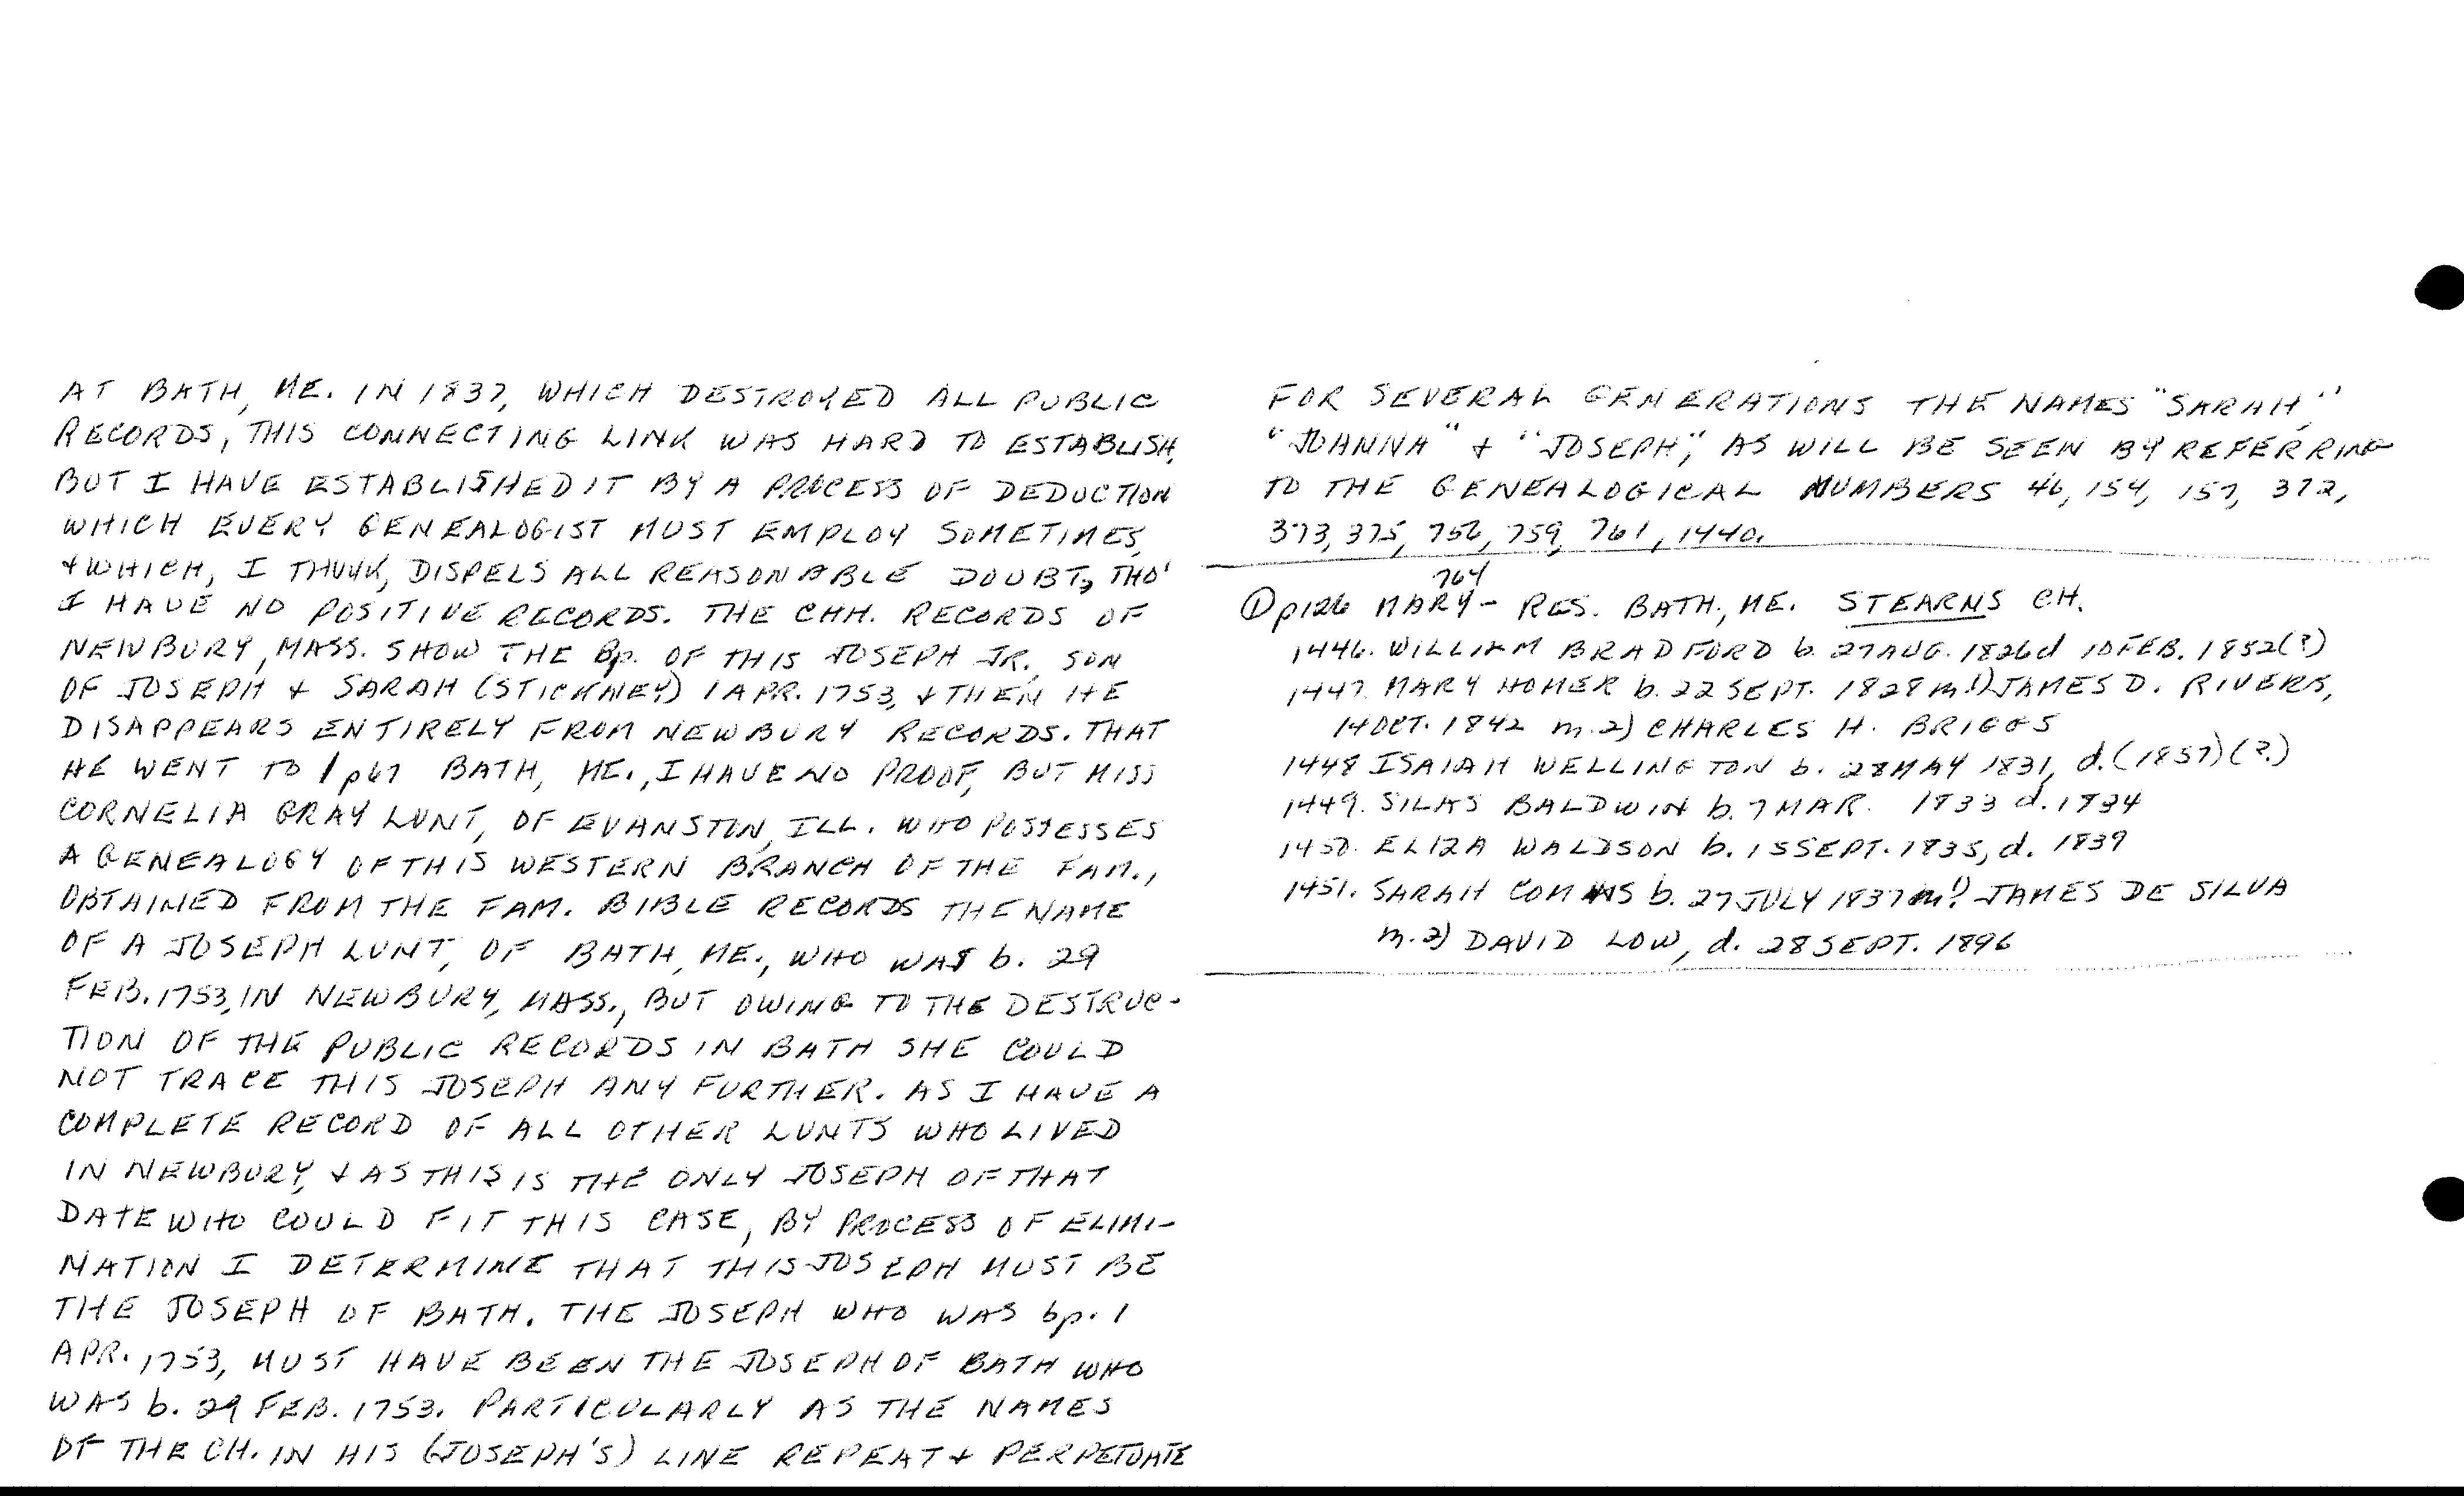 AT BATH, ME. IN 1837, WHICH DESTROYED ALL PUBLIC
RECORDS, THIS CONNECTING LINK WAS HARD TO ESTABLISH,
BUT I HAVE ESTABLISHED IT BY A PROCESS OF DEDUCTION
WHICH EVERY GENEALOGIST MUST EMPLOY SOMETIMES,
& WHICH, I THINK, DISPELS ALL REASONABLE DOUBT, THO'
I HAVE NO POSITIVE RECORDS. THE CHH. RECORDS OF
NEWBURY, MASS. SHOW THE Bp. OF THIS JOSEPH JR., SON
OF JOSEPH & SARAH (STICKNEY) 1 APR. 1753, & THEN HE
DISAPPEARS ENTIRELY FROM NEWBURY RECORDS. THAT
HE WENT TO / p67 BATH, ME., I HAVE NO PROOF, BUT MISS
CORNELIA GRAY LUNT, OF EVANSTON, ILL. WHO POSSESSES
A GENEALOGY OF THIS WESTERN BRANCH OF THE FAM.,
OBTAINED FROM THE FAM. BIBLE RECORDS THE NAME
OF A JOSEPH LUNT, OF BATH, ME., WHO WAS b. 29
FEB. 1753, IN NEWBURY, MASS., BUT OWING TO THE DESTRUC-
TION OF THE PUBLIC RECORDS IN BATH SHE COULD
NOT TRACE THIS JOSEPH ANY FURTHER. AS I HAVE A
COMPLETE RECORD OF ALL OTHER LUNTS WHO LIVED
IN NEWBURY, & AS THIS IS THE ONLY JOSEPH OF THAT
DATE WHO COULD FIT THIS CASE, BY PROCESS OF ELIMI-
NATION I DETERMINE THAT THIS JOSEPH MUST BE
THE JOSEPH OF BATH. THE JOSEPH WHO WAS bp. 1
APR. 1753, MUST HAVE BEEN THE JOSEPH OF BATH WHO
WAS b. 29 FEB. 1753. PARTICULARLY AS THE NAMES
OF THE CH. IN HIS (JOSEPH'S) LINE REPEAT & PERPETUATE
FOR SEVERAL GENERATIONS THE NAMES "SARAH,"
"JOANNA" & "JOSEPH," AS WILL BE SEEN BY REFERRING
TO THE GENEALOGICAL NUMBERS 46, 154, 157, 372,
373, 375, 756, 759, 761, 1440.
764
① p126 MARY - RES. BATH, ME. STEARNS CH.
1446. WILLIAM BRADFORD b. 27 AUG. 1826 d 10 FEB. 1852(?)
1447. MARY HOMER b. 22 SEPT. 1828 m. 1) JAMES D. RIVERS,
14 OCT. 1842 m. 2) CHARLES H. BRIGGS
1448 ISAIAH WELLINGTON b. 28 MAY 1831, d. (1857)(?)
1449. SILAS BALDWIN b. 7 MAR. 1833 d. 1834
1450. ELIZA WALDSON b. 15 SEPT. 1835, d. 1839
1451. SARAH b. 27 JULY 1837 m. 1) JAMES DE SILVA
m. 2) DAVID LOW, d. 28 SEPT. 1896